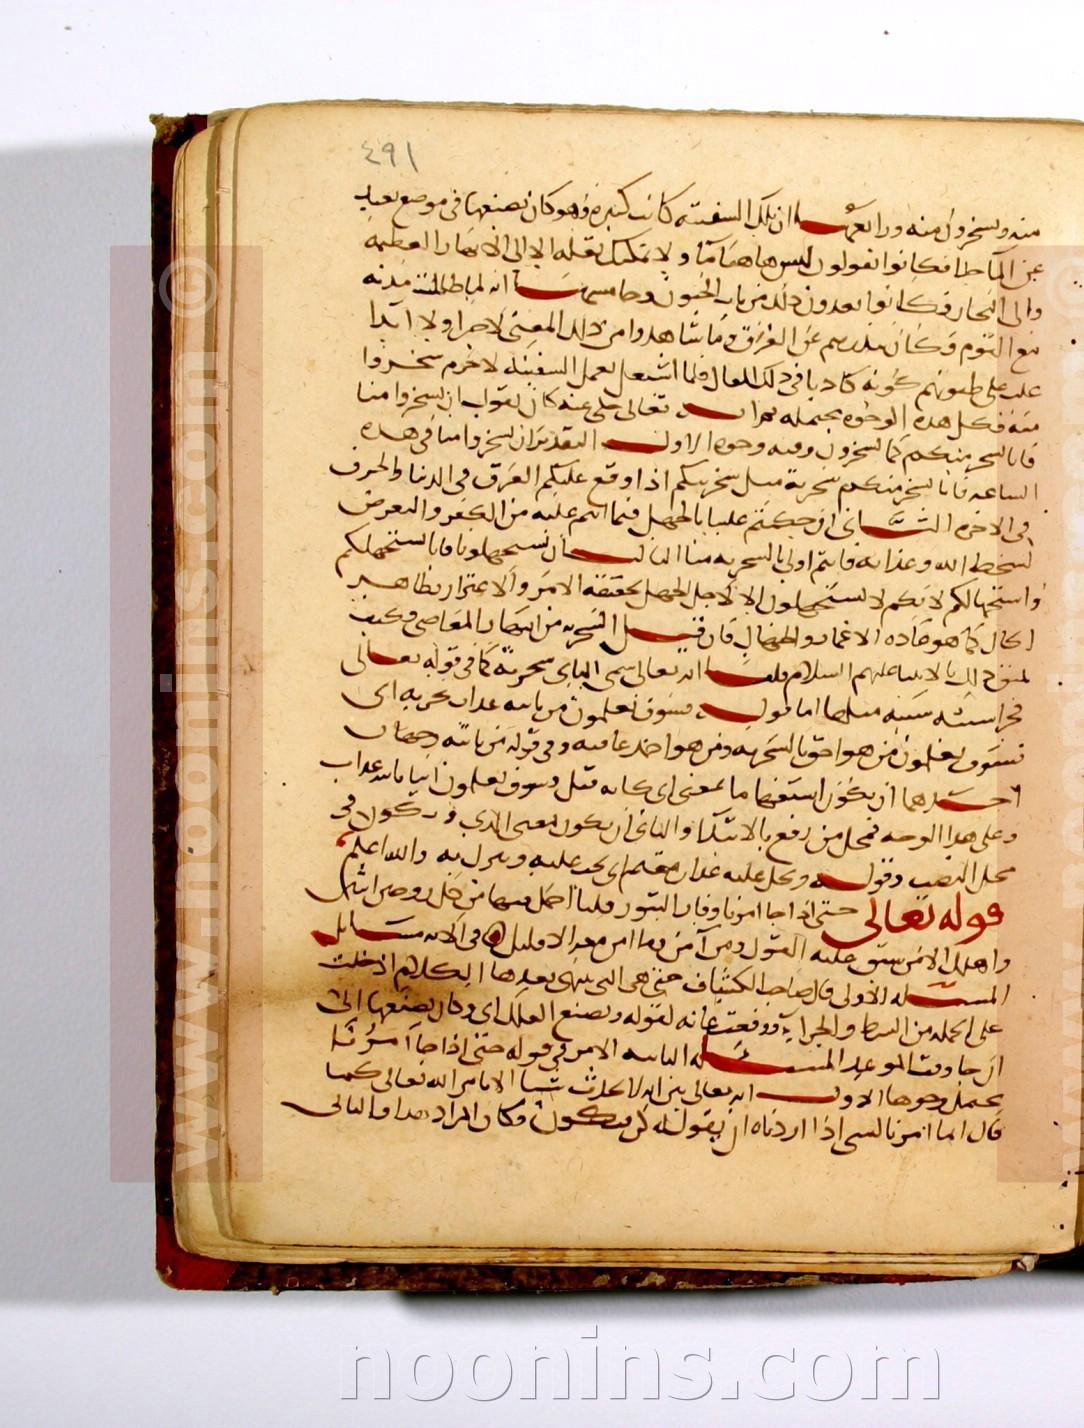 ٤٩١
منه ويسخرون منه ورابعها ان تلك السفينه كانت كبيره وهو كان يصنعها فى موضع بعيد
عن الما جدا فكانوا يقولون ليس هاهنا ما ولا يمكنك نقله الا الى الانهار العظيمه
والى البحار فكانوا يعدون ذلك من باب الجنون وخامسها انه لما طالت مدته
مع القوم وكان ينذرهم عن الغرق وما شاهدوا من ذلك المعنى لا خبرا ولا اثرا
غلب على ظنونهم كونه كاذبا فى ذلك المقال فلما اشتغل بعمل السفينه لا جرم سخروا
منه فكل هذه الوجوه محتمله ثم انه تعالى حكى عنه كان يقول ان تسخروا منا
فانا نسخر منكم كما تسخرون وفيه وجوه الاول التقدير ان تسخروا منا فى هذه
الساعه فانا نسخر منكم سخرية مثل سخريتكم اذا وقع عليكم الغرق فى الدنيا والخزى
فى الاخره الثانى ان حكمتم علينا بالجهل فيما انتم عليه من الكفر والتعرض
لسخط الله وعذابه فانتم اولى بالسخريه منا الثالث ان تستجهلونا فانا نستجهلكم
واستجهالكم لانكم لا تستجهلون الا لاجل الجهل بحقيقه الامر والاغترار بظاهر
الحال كما هو عاده الاغمار والجهال فان قيل السخريه من اثار المعاصى فكيف
يليق ذلك بالانبيا عليهم السلام قلنا انه تعالى سمى الثانى سخرية كما فى قوله تعالى
وجزا سيئه سيئه مثلها اما قوله فسوف تعلمون من ياتيه عذاب يخزيه اى
فسوف تعلمون من هو احق بالسخريه ومن هو احمد عاقبه وفى قوله من ياتيه وجهان
احدهما ان يكون استفهاما بمعنى اى كانه قيل فسوف تعلمون اينا ياتيه عذاب
وعلى هذا الوجه فمحل من رفع بالابتدا والثانى ان يكون بمعنى الذى ويكون فى
محل النصب وقوله ويحل عليه عذاب مقيم اى يجب عليه وينزل به والله اعلم
قوله تعالى حتى اذا جا امرنا وفار التنور قلنا احمل فيها من كل زوجين اثنين
واهلك الا من سبق عليه القول ومن آمن وما امن معه الا قليل فى الآيه مسايل
المسئله الاولى قال صاحب الكشاف حتى هى التى يبتدى بعدها الكلام ادخلت
على الجمله من الشرط والجزا ووقعت غايه لقوله ويصنع الفلك اى وكان يصنعها الى
ان جا وقت الموعد المسئله الثانيه الامر فى قوله حتى اذا جا امرنا
يحتمل وجوها الاول انه تعالى بين انه لا يحدث شيا الا بامر الله تعالى كما
قال انما امرنا لشى اذا اردناه ان نقول له كن فيكون فكان المراد هذا والثانى
www.noonins.com
noonins.com